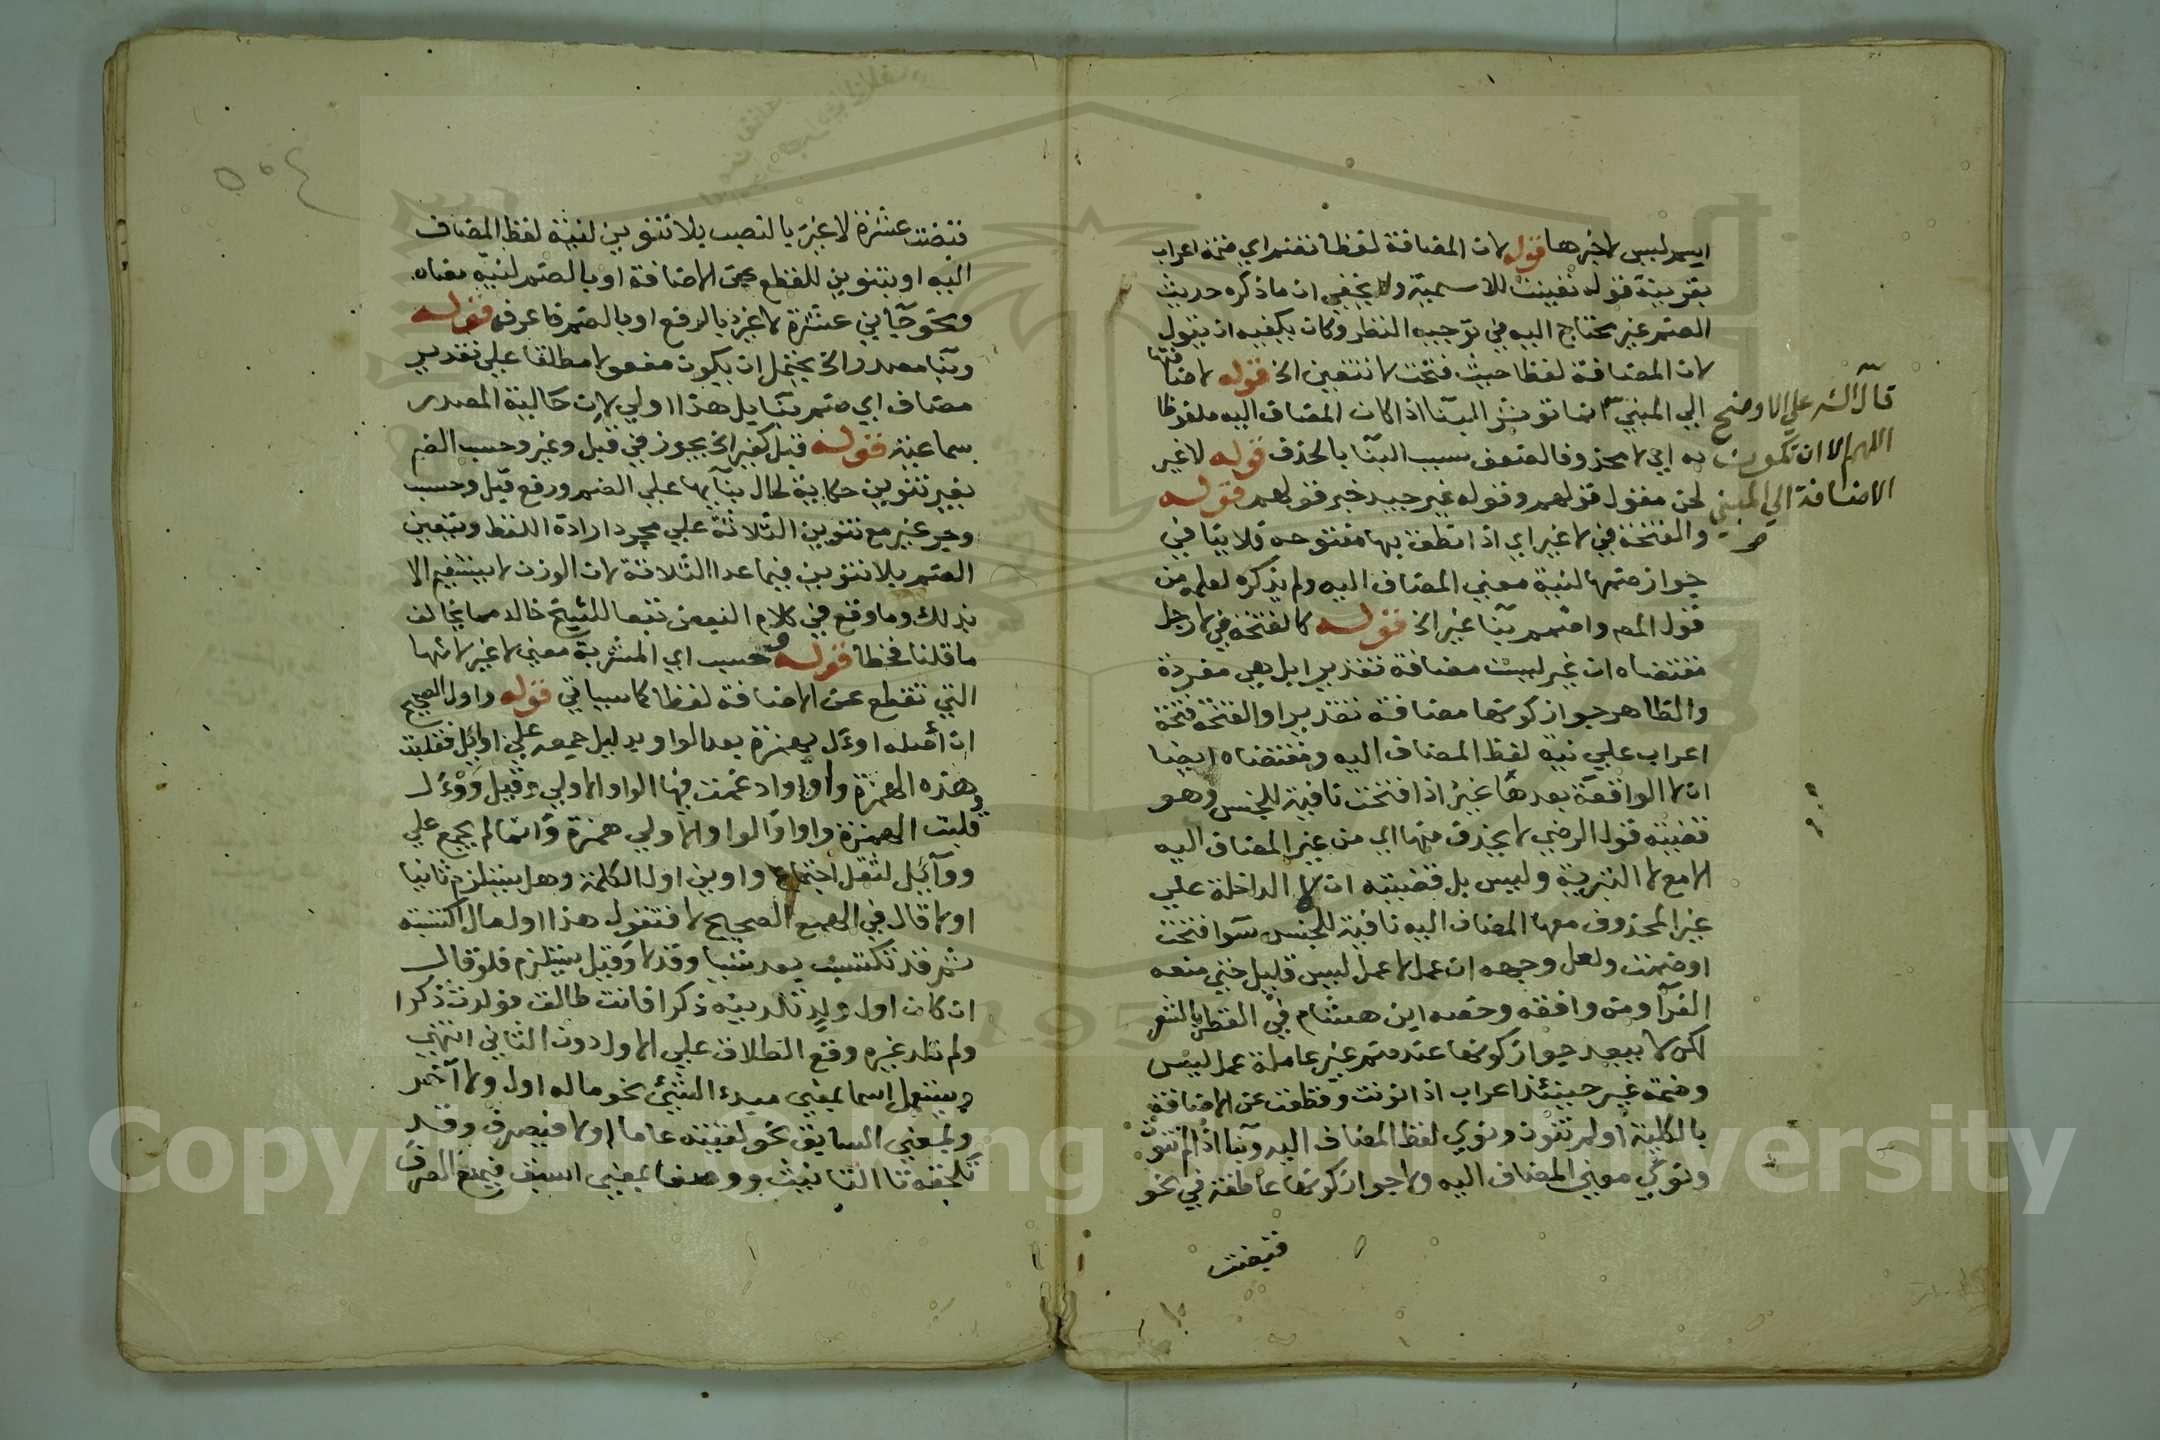 ايسر ليس لاخبرها قوله لان المضافة لفظا تضم اي ضمة اعراب
بقرينة قوله تعينت للاسمية ولا يخفى ان ما ذكره حديث
الضم غير محتاج اليه في توجيه النظر وكان يكفيه ان يقول
لان المضافة لفظا حيث فتحت لا تتعين الخ قوله لاضافتها
الى المبني انما تؤثر البنا اذا كان المضاف اليه ملفوظا
به اي لا محذوفا لضعف سبب البنا بالحذف قوله لا غير
لحن مقول قولهم وقوله غير جيد خبر قولهم قوله
والفتحة في لا غير اي اذا نطقت بها مفتوحة فلا ينافي
جواز ضمها لنية معنى المضاف اليه ولم يذكره لعلمه من
قول المص واضمم بنا غير الخ قوله كالفتحة في لا رجل
مقتضاه ان غير ليست مضافة تقديرا بل هي مفردة
والظاهر جواز كونها مضافة تقديرا والفتحة فتحة
اعراب على نية لفظ المضاف اليه ومقتضاه ايضا
ان لا الواقعة بعدها غير اذا فتحت نافية للجنس وهو
قضية قول الرضي لا يحذف منها اي من غير المضاف اليه
الا مع لا التبرية وليس بل قضيته ان لا الداخلة على
غير المحذوف معها المضاف اليه نافية للجنس سوا فتحت
او ضمت ولعل وجهه ان عمل لا عمل ليس قليل حتى منعه
الفرآ ومن وافقه وخصه ابن هشام في القطر بالشعر
لكن لا يبعد جواز كونها عند ضم غير عاملة عمل ليس
وضمة غير حينئذ اعراب اذا نونت وقطعت عن الاضافة
بالكلية او لم تنون ونوي لفظ المضاف اليه وبنا اذا لم تنون
ونوي معنى المضاف اليه ولا جواز كونها عاطفة في نحو
فقبضت
قال الش على الاوضح
اللهم الا ان تكون
الاضافة الى المبني
فقبضت عشرة لا غير بالنصب بلا تنوين لنية لفظ المضاف
اليه او بتنوين للقطع عن الاضافة او بالضم لنية معناه
ونحو جاني عشرة لا غير بالرفع او بالضم فاعرف قوله
وبنا مصدر الخ يحتمل ان يكون مفعولا مطلقا على تقدير
مضاف اي ضم بنا بل هذا اولى لان حالية المصدر
سماعية قوله قبل كغير الخ يجوز في قبل وغير وحسب الضم
بغير تنوين حكاية لحال بنآيها على الضم ورفع قبل وحسب
وجر غير مع تنوين الثلاثة على مجرد ارادة اللفظ ويتعين
الضم بلا تنوين فيما عدا الثلاثة لان الوزن لا يستقيم الا
بذلك وما وقع في كلام البعض تبعا للشيخ خالد مما يخالف
ما قلنا فخطا قوله وحسب اي المشربة معنى لا غير لانها
التي تقطع عن الاضافة لفظا كما سياتي قوله واول الصحيح
ان اصله اوءل بهمزة بعد الواو بدليل جمعه على اوائل فقلبت
هذه الهمزة واوا وادغمت فيها الواو الاولى وقيل ووءل
قلبت الهمزة واوا والواو الاولى همزة وانما لم يجمع على
ووآئل لثقل اجتماع واوين اول الكلمة وهل يستلزم ثانيا
اولا قال في الجمع الصحيح لا فتقول هذا اول مال اكتسبته
ثم قد تكتسب بعد شيا وقد لا وقيل يستلزم فلو قال
ان كان اول ولد تلدينه ذكرا فانت طالق فولدت ذكرا
ولم تلد غيره وقع الطلاق على الاول دون الثاني انتهى
ويستعمل اسما بمعنى مبدء الشئ نحو ما له اول ولا آخر
وبمعنى السابق نحو لقيته عاما اولا فيصرف وقد
تلحقه تا التانيث ووصفا بمعنى اسبق فيمنع الصرف
Copyright © King Saud University
1957